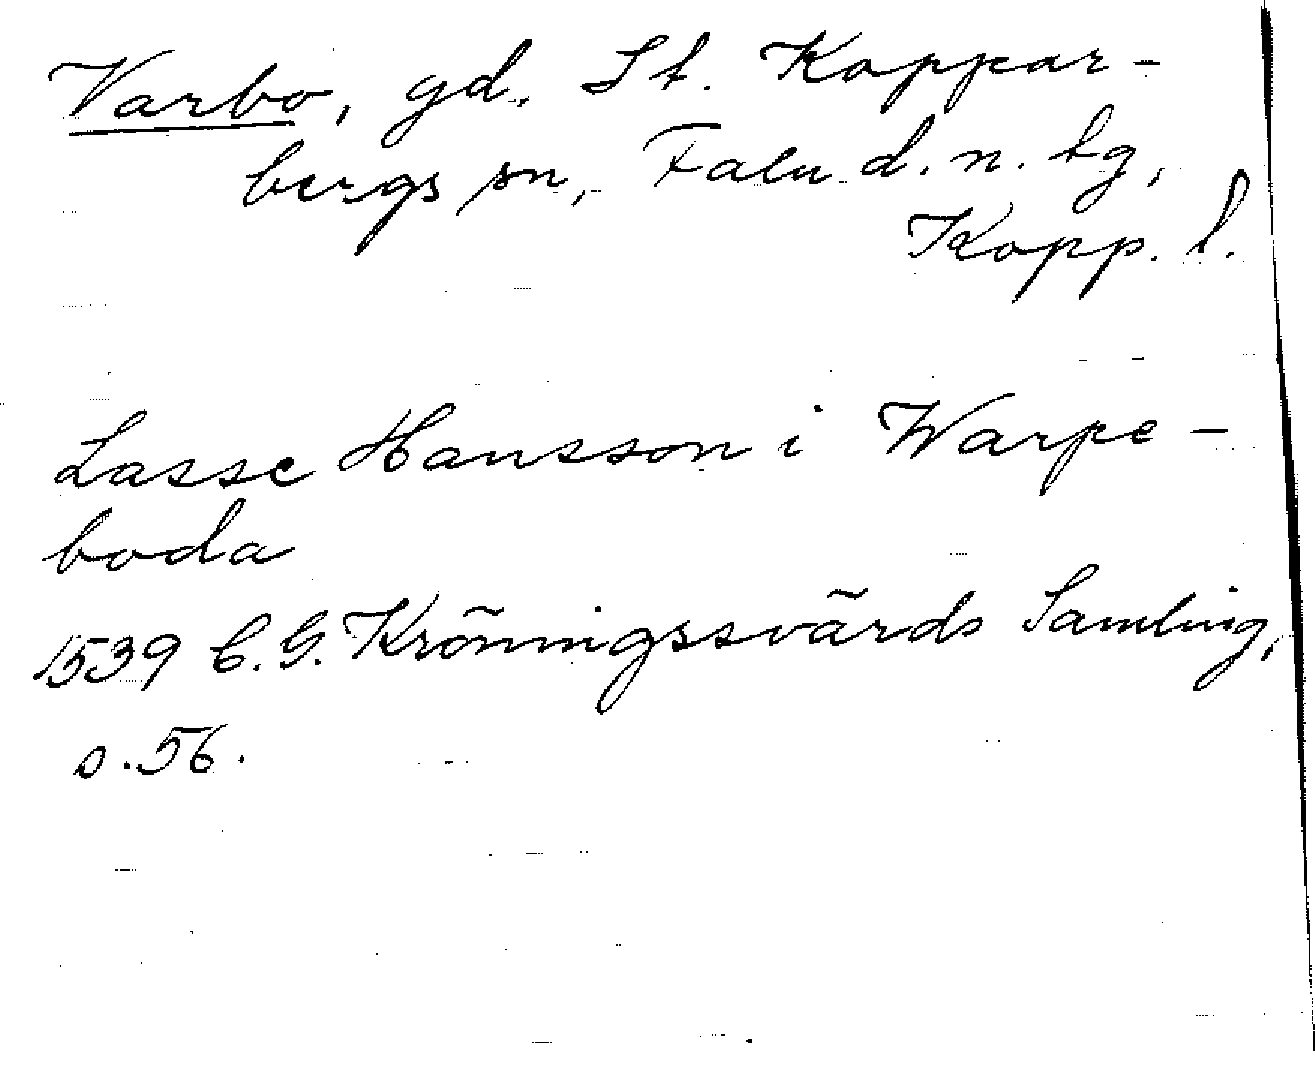 Varbo, gd. St. Koppar-
bergs sn, Falu d.n. tg,
Kopp. l.
Lasse Hansson i Warpe-
boda
1539 C.G. Kröningssvärds Samling,
s. 56.